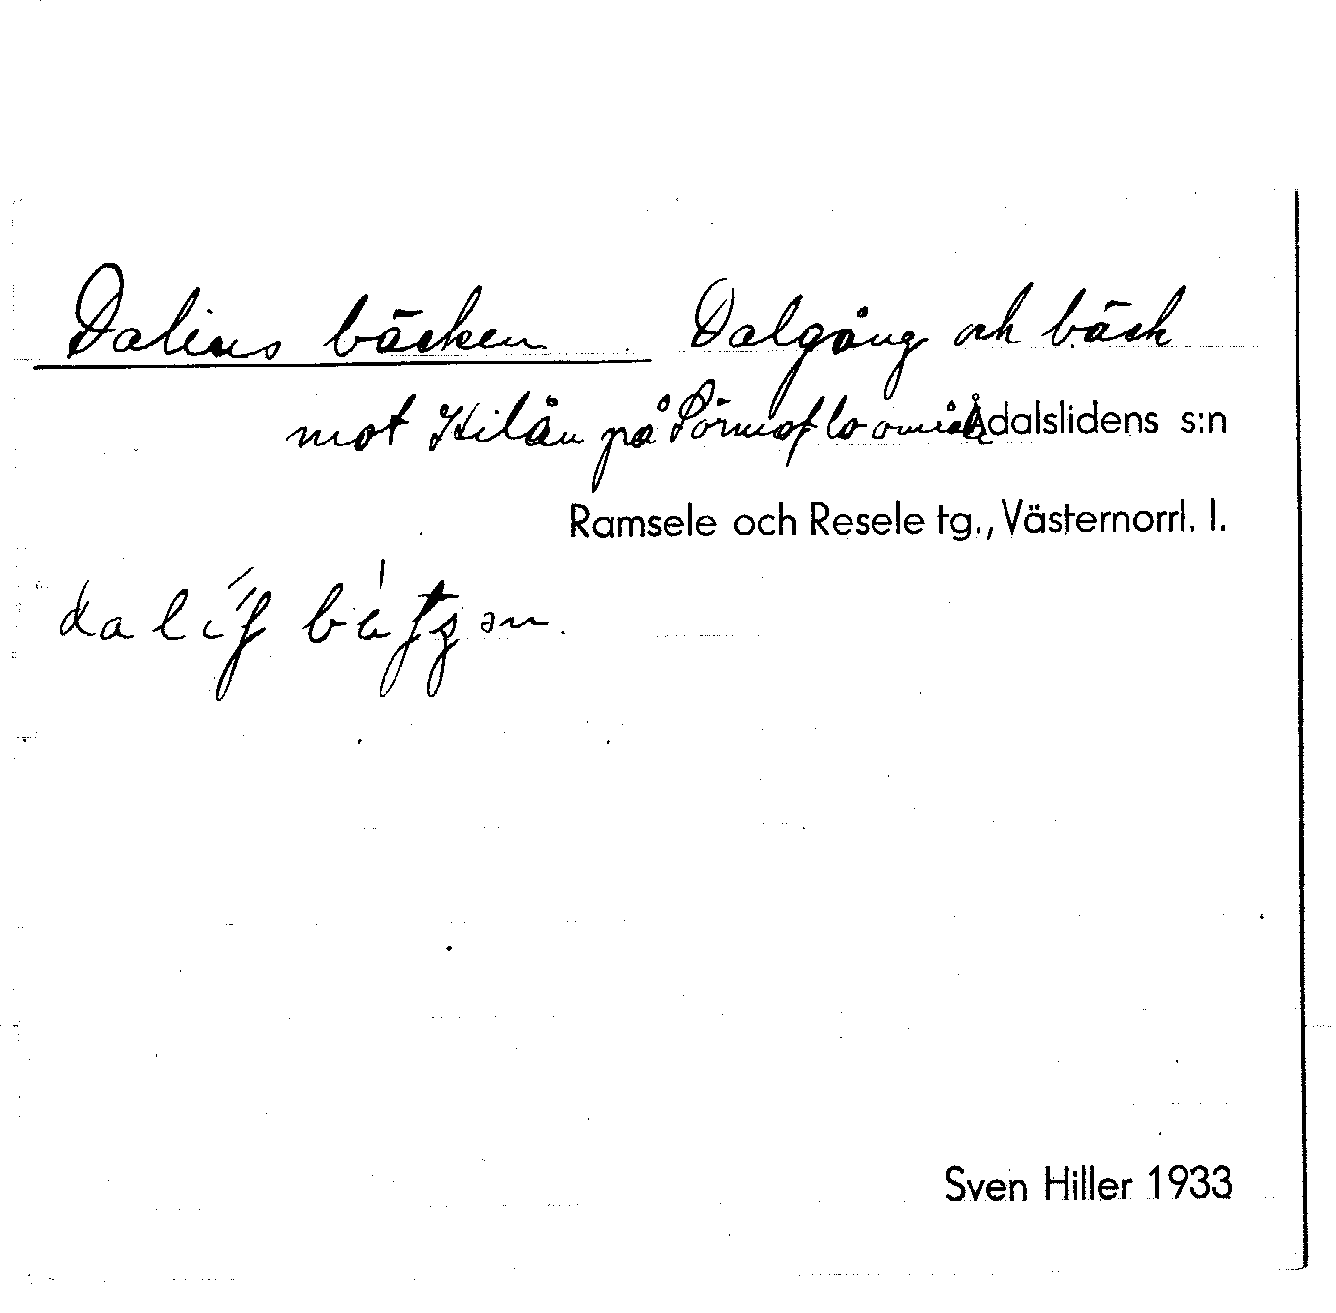 Dalins bäcken Dalgång och bäck
mot Kilån på Sörmoflo område Ådalslidens s:n
Ramsele och Resele tg., Västernorrl. l.
Sven Hiller 1933